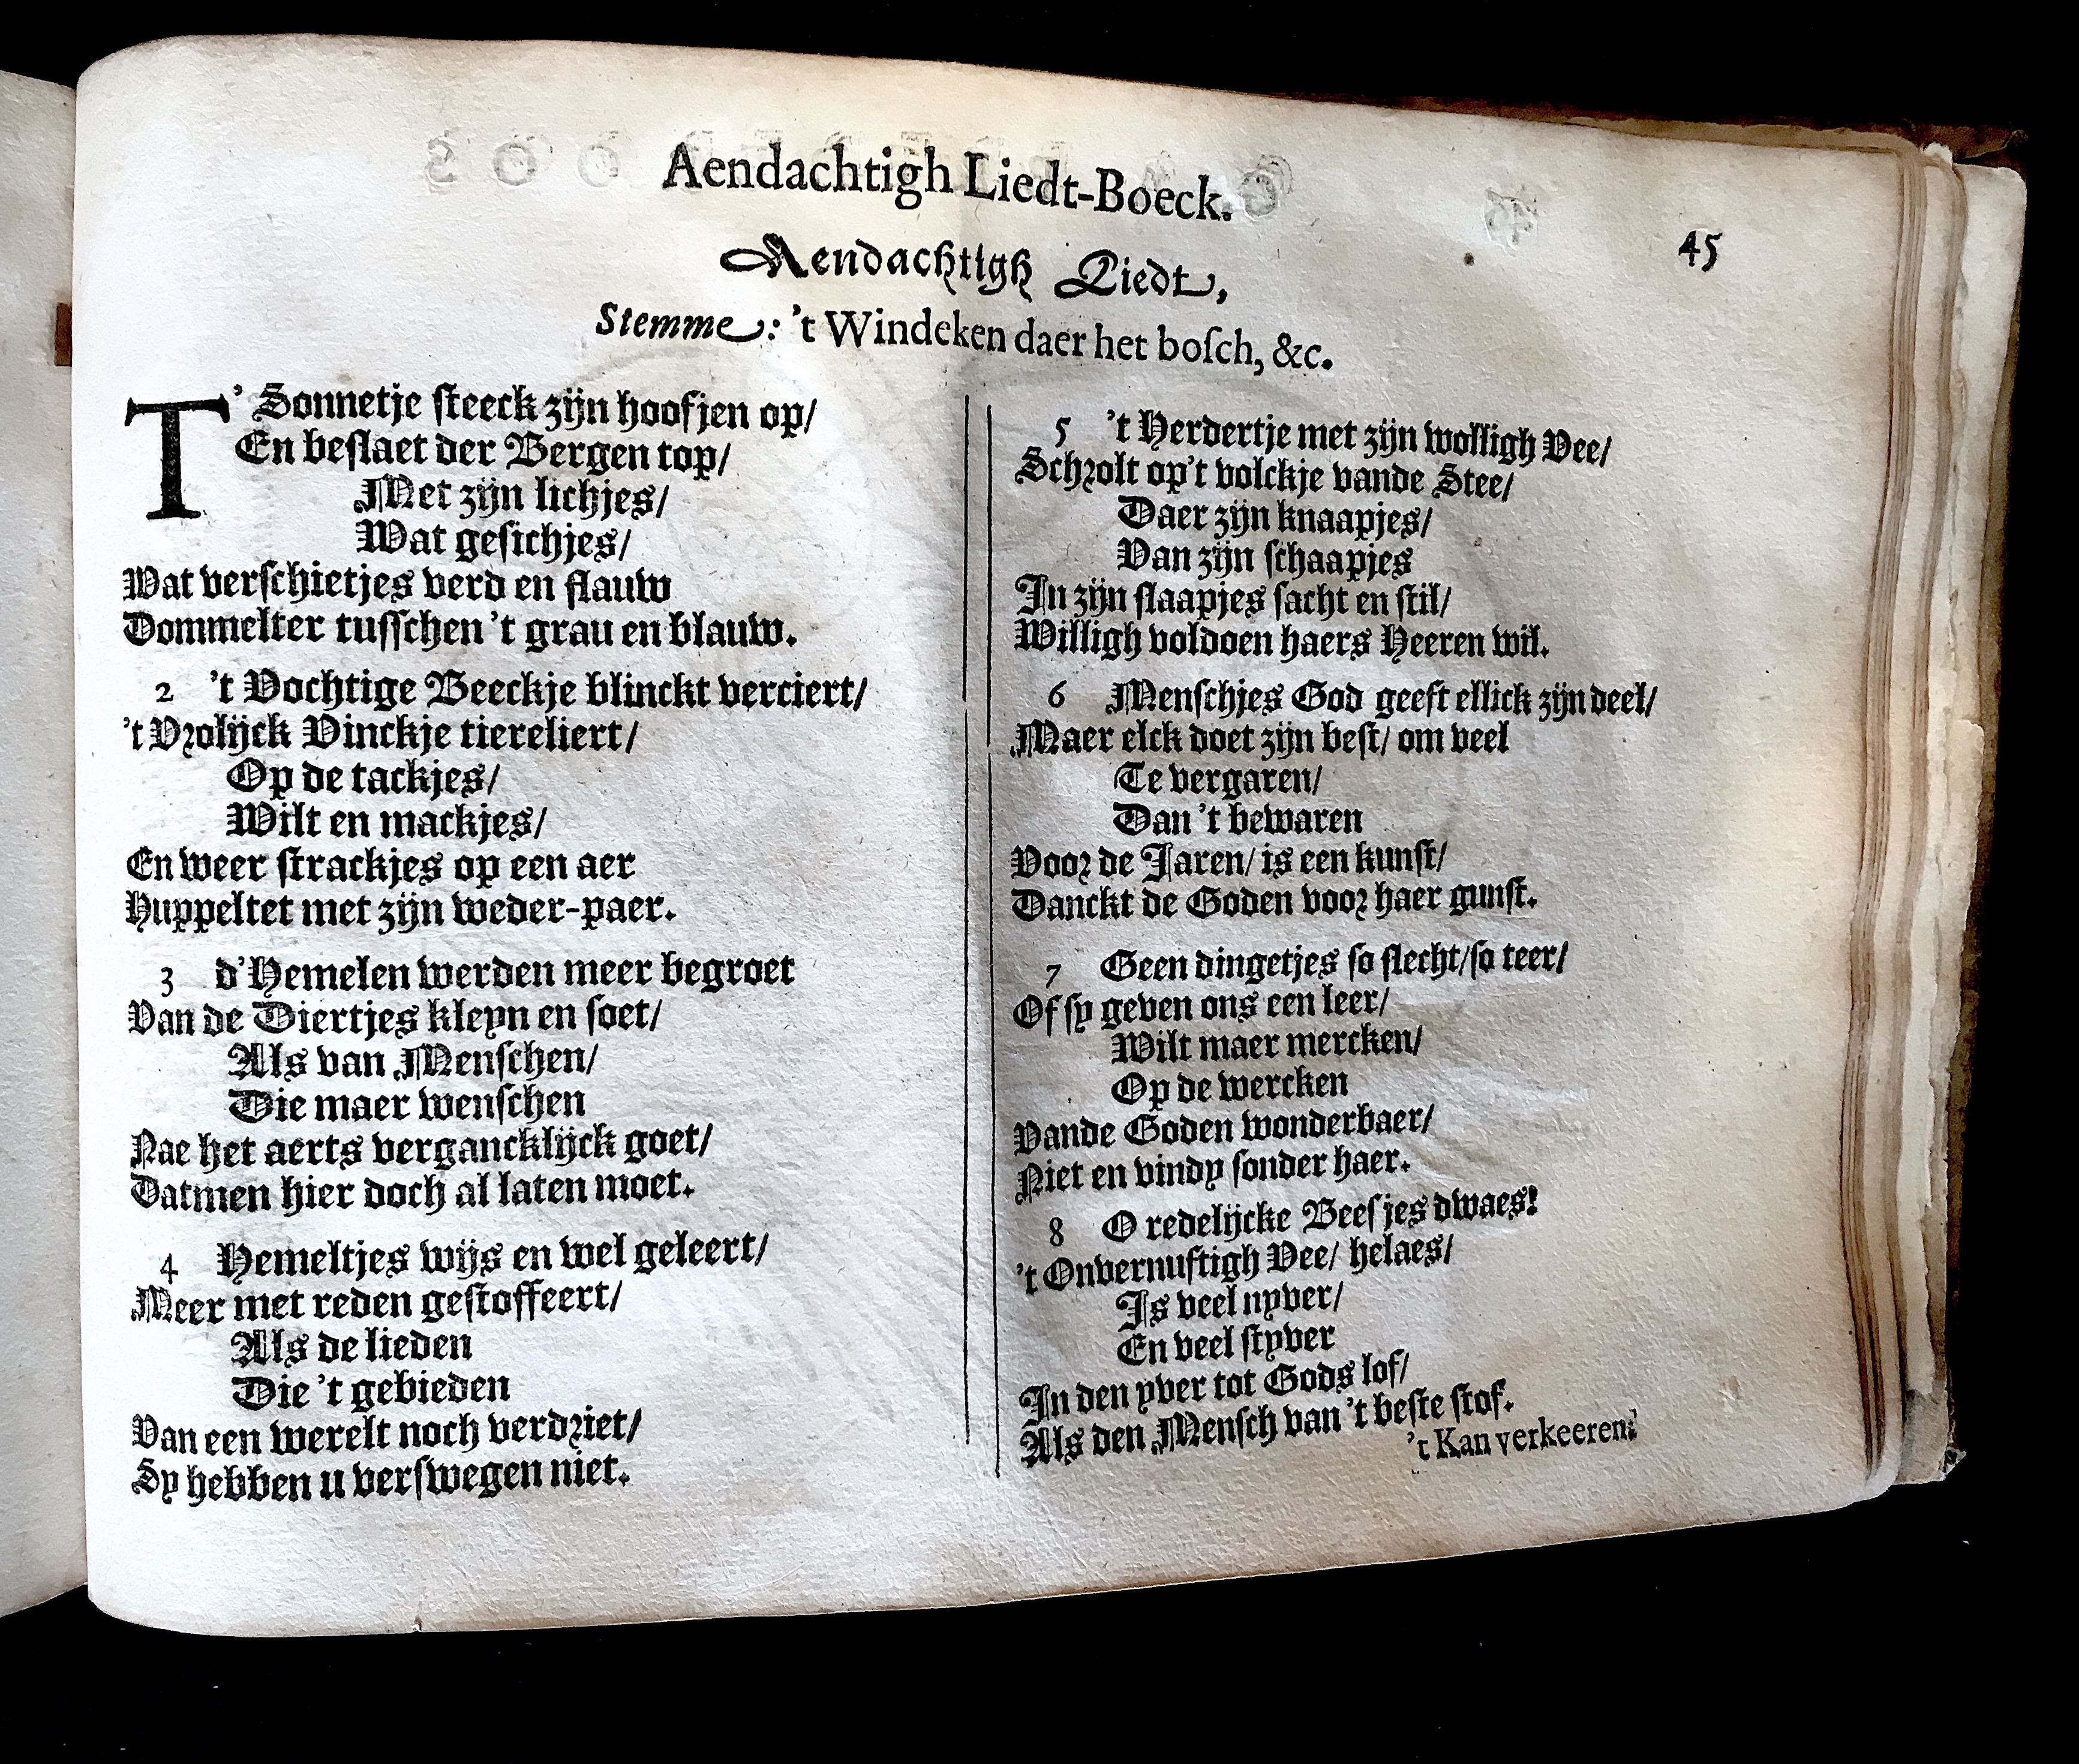 Aendachtigh Liedt-Boeck.
45
Aendachtigh Liedt,
Stemme: 't Windeken daer het bosch, &c.
T' Sonnetje steeck zijn hoofjen op/
En beslaet der Bergen top/
Met zijn lichjes/
Wat gesichjes/
Wat verschietjes verd en flauw
Dommelter tusschen 't grau en blauw.
2 't Vochtige Beeckje blinckt verciert/
't Vrolijck Vinckje tiereliert/
Op de tackjes/
Wilt en mackjes/
En weer strackjes op een aer
Huppeltet met zijn weder-paer.
3 d'Hemelen werden meer begroet
Van de Diertjes kleyn en soet/
Als van Menschen/
Die maer wenschen
Nae het aerts vergancklijck goet/
Datmen hier doch al laten moet.
4 Hemeltjes wijs en wel geleert/
Meer met reden gestoffeert/
Als de lieden
Die 't gebieden
Van een werelt noch verdriet/
Sy hebben u verswegen niet.
5 't Herdertje met zijn wolligh Vee/
Schrolt op't volckje vande Stee/
Daer zijn knaapjes/
Van zijn schaapjes
In zijn slaapjes sacht en stil/
Willigh voldoen haers Heeren wil.
6 Menschjes God geeft ellick zijn deel/
Maer elck doet zijn best/ om veel
Te vergaren/
Dan 't bewaren
Voor de Jaren/ is een kunst/
Danckt de Goden voor haer gunst.
7 Geen dingetjes so slecht/so teer/
Of sy geven ons een leer/
Wilt maer mercken/
Op de wercken
Vande Goden wonderbaer/
Niet en vindy sonder haer.
8 O redelijcke Beesjes dwaes!
't Onvernuftigh Vee/ helaes/
Is veel nyver/
En veel styver
In den yver tot Gods lof/
Als den Mensch van 't beste stof.
't Kan verkeeren.